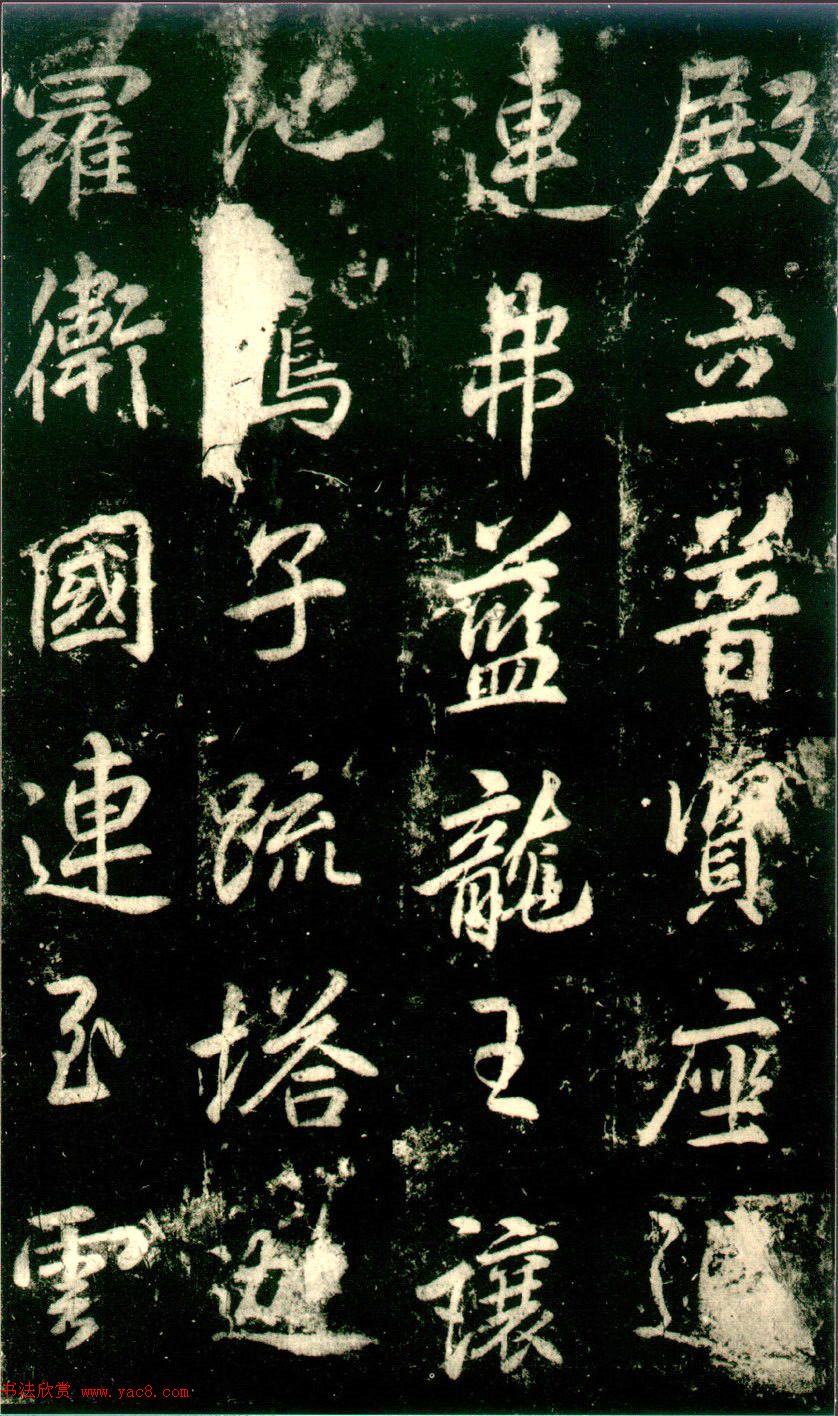 殿立普賢座連
連弗藍龍王讓
池鳥子疏塔迦
羅衛國連至雲
书法欣赏 www.yac8.com